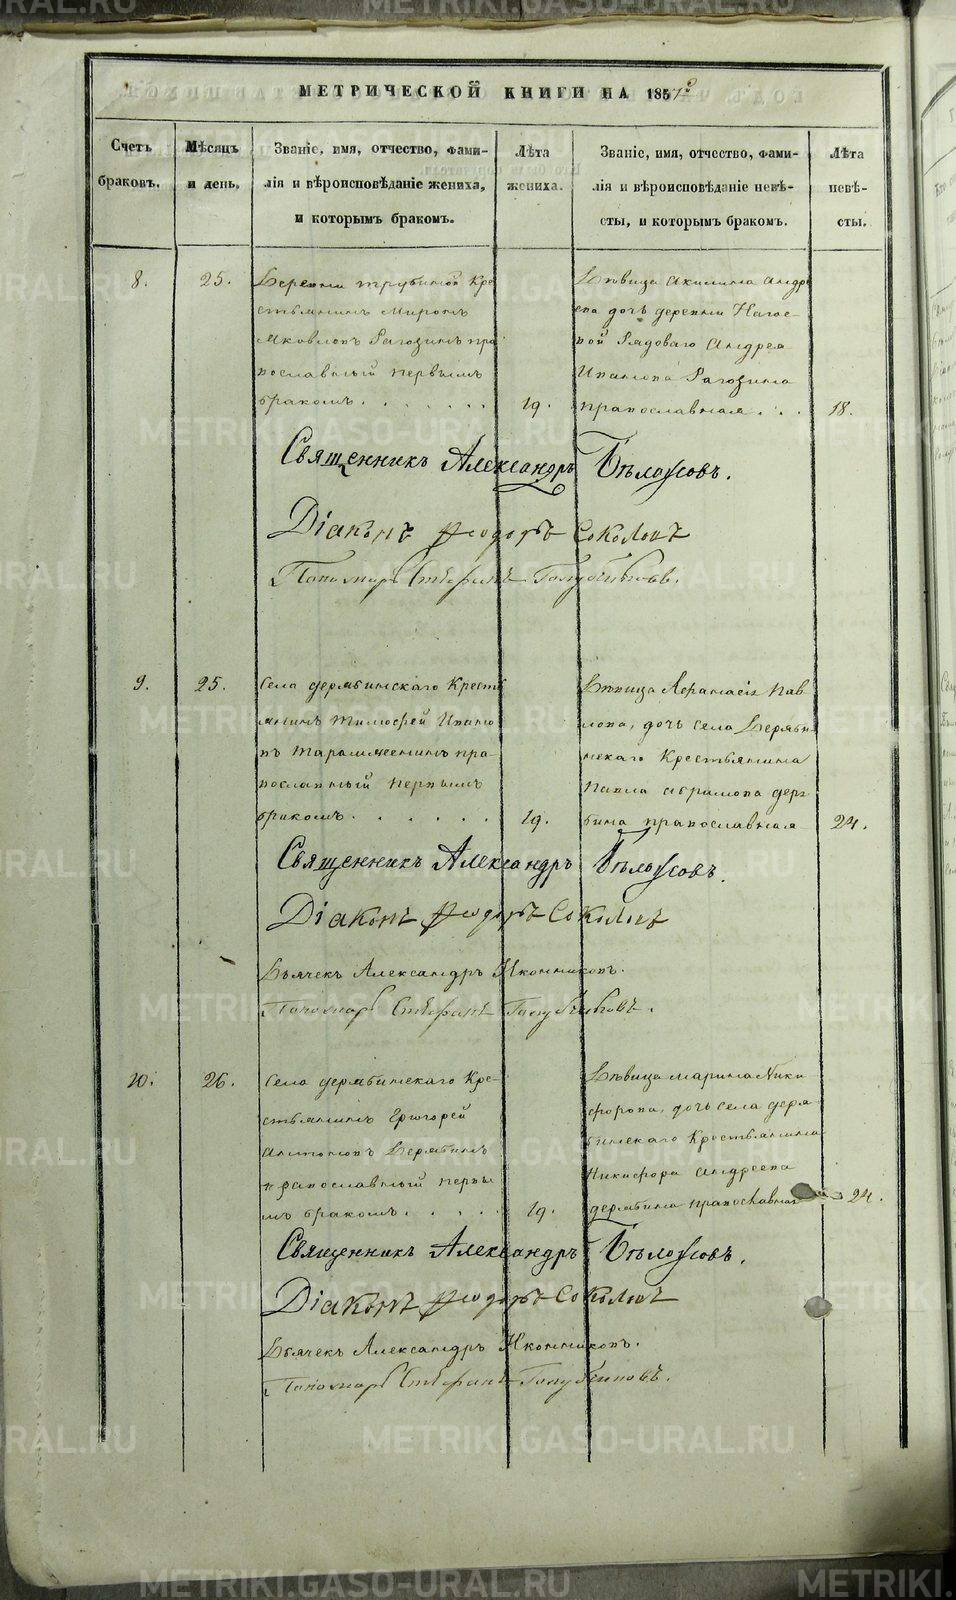 МЕТРИЧЕСКОЙ КНИГИ НА 1857
Счетъ браковъ.
Мѣсяцъ и день.
Званіе, имя, отчество, фами-
лія и вѣроисповѣданіе жениха,
и которымъ бракомъ.
Лѣта жениха.
Званіе, имя, отчество, фами-
лія и вѣроисповѣданіе невѣ-
сты, и которымъ бракомъ.
Лѣта невѣ-
сты.
8.
25.
Деревни Трубиной Кре
стьянинъ Миронъ
Яковлевъ Рагозинъ пра
вославный первымъ
бракомъ. . . . . . .
19.
Дѣвица Акилина Андре
ева дочь деревни Нагае-
вой Рядоваго Андрея
Иванова Рагозина
православная . . .
18.
Священникъ Александръ Бѣлоусовъ.
Діаконъ Ѳеодоръ Соколовъ
Пономарь Стефанъ Голубчиковъ.
9.
25.
Села Дерябинскаго Кресть
янинъ Тимофей Ивано
въ пра-
вославный первымъ
бракомъ. . . . . . .
19.
Дѣвица Афанасія Пав
лова, дочь села Дерябин
скаго Крестьянина
Павла Абрамова Деря
бина православная
24.
Священникъ Александръ Бѣлоусовъ.
Діаконъ Ѳеодоръ Соколовъ
Дьячекъ Александръ Иконниковъ.
Пономарь Стефанъ Голубчиковъ.
10.
26.
Села Дерябинскаго Кре-
стьянинъ Григорей
Антоновъ Дерябинъ
православный первы
мъ бракомъ. . . . . .
19.
Дѣвица Марина Ники
форова, дочь села Деря
бинскаго Крестьянина
Никифора Андреева
Дерябина православная
24.
Священникъ Александръ Бѣлоусовъ.
Діаконъ Ѳеодоръ Соколовъ
Дьячекъ Александръ Иконниковъ.
Пономарь Стефанъ Голубчиковъ.
METRIKI.GASO-URAL.RU